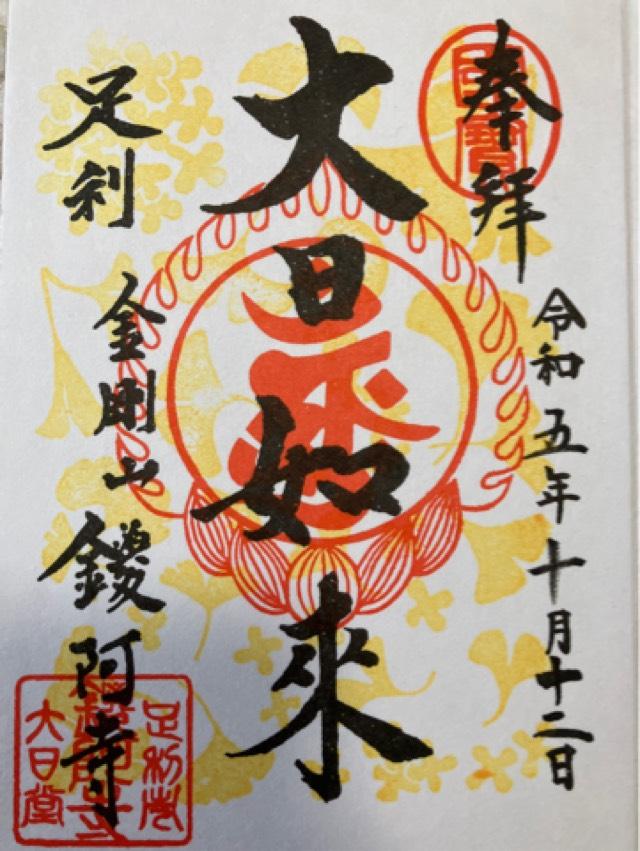 奉拜
國寶
令和五年十月十二日
大日如來
足利
金剛山鑁阿寺
足利庄
鑁阿寺
大日堂